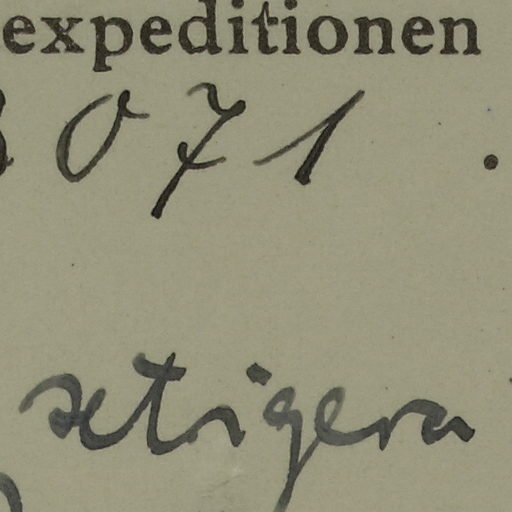 expeditionen
071 .
setigera